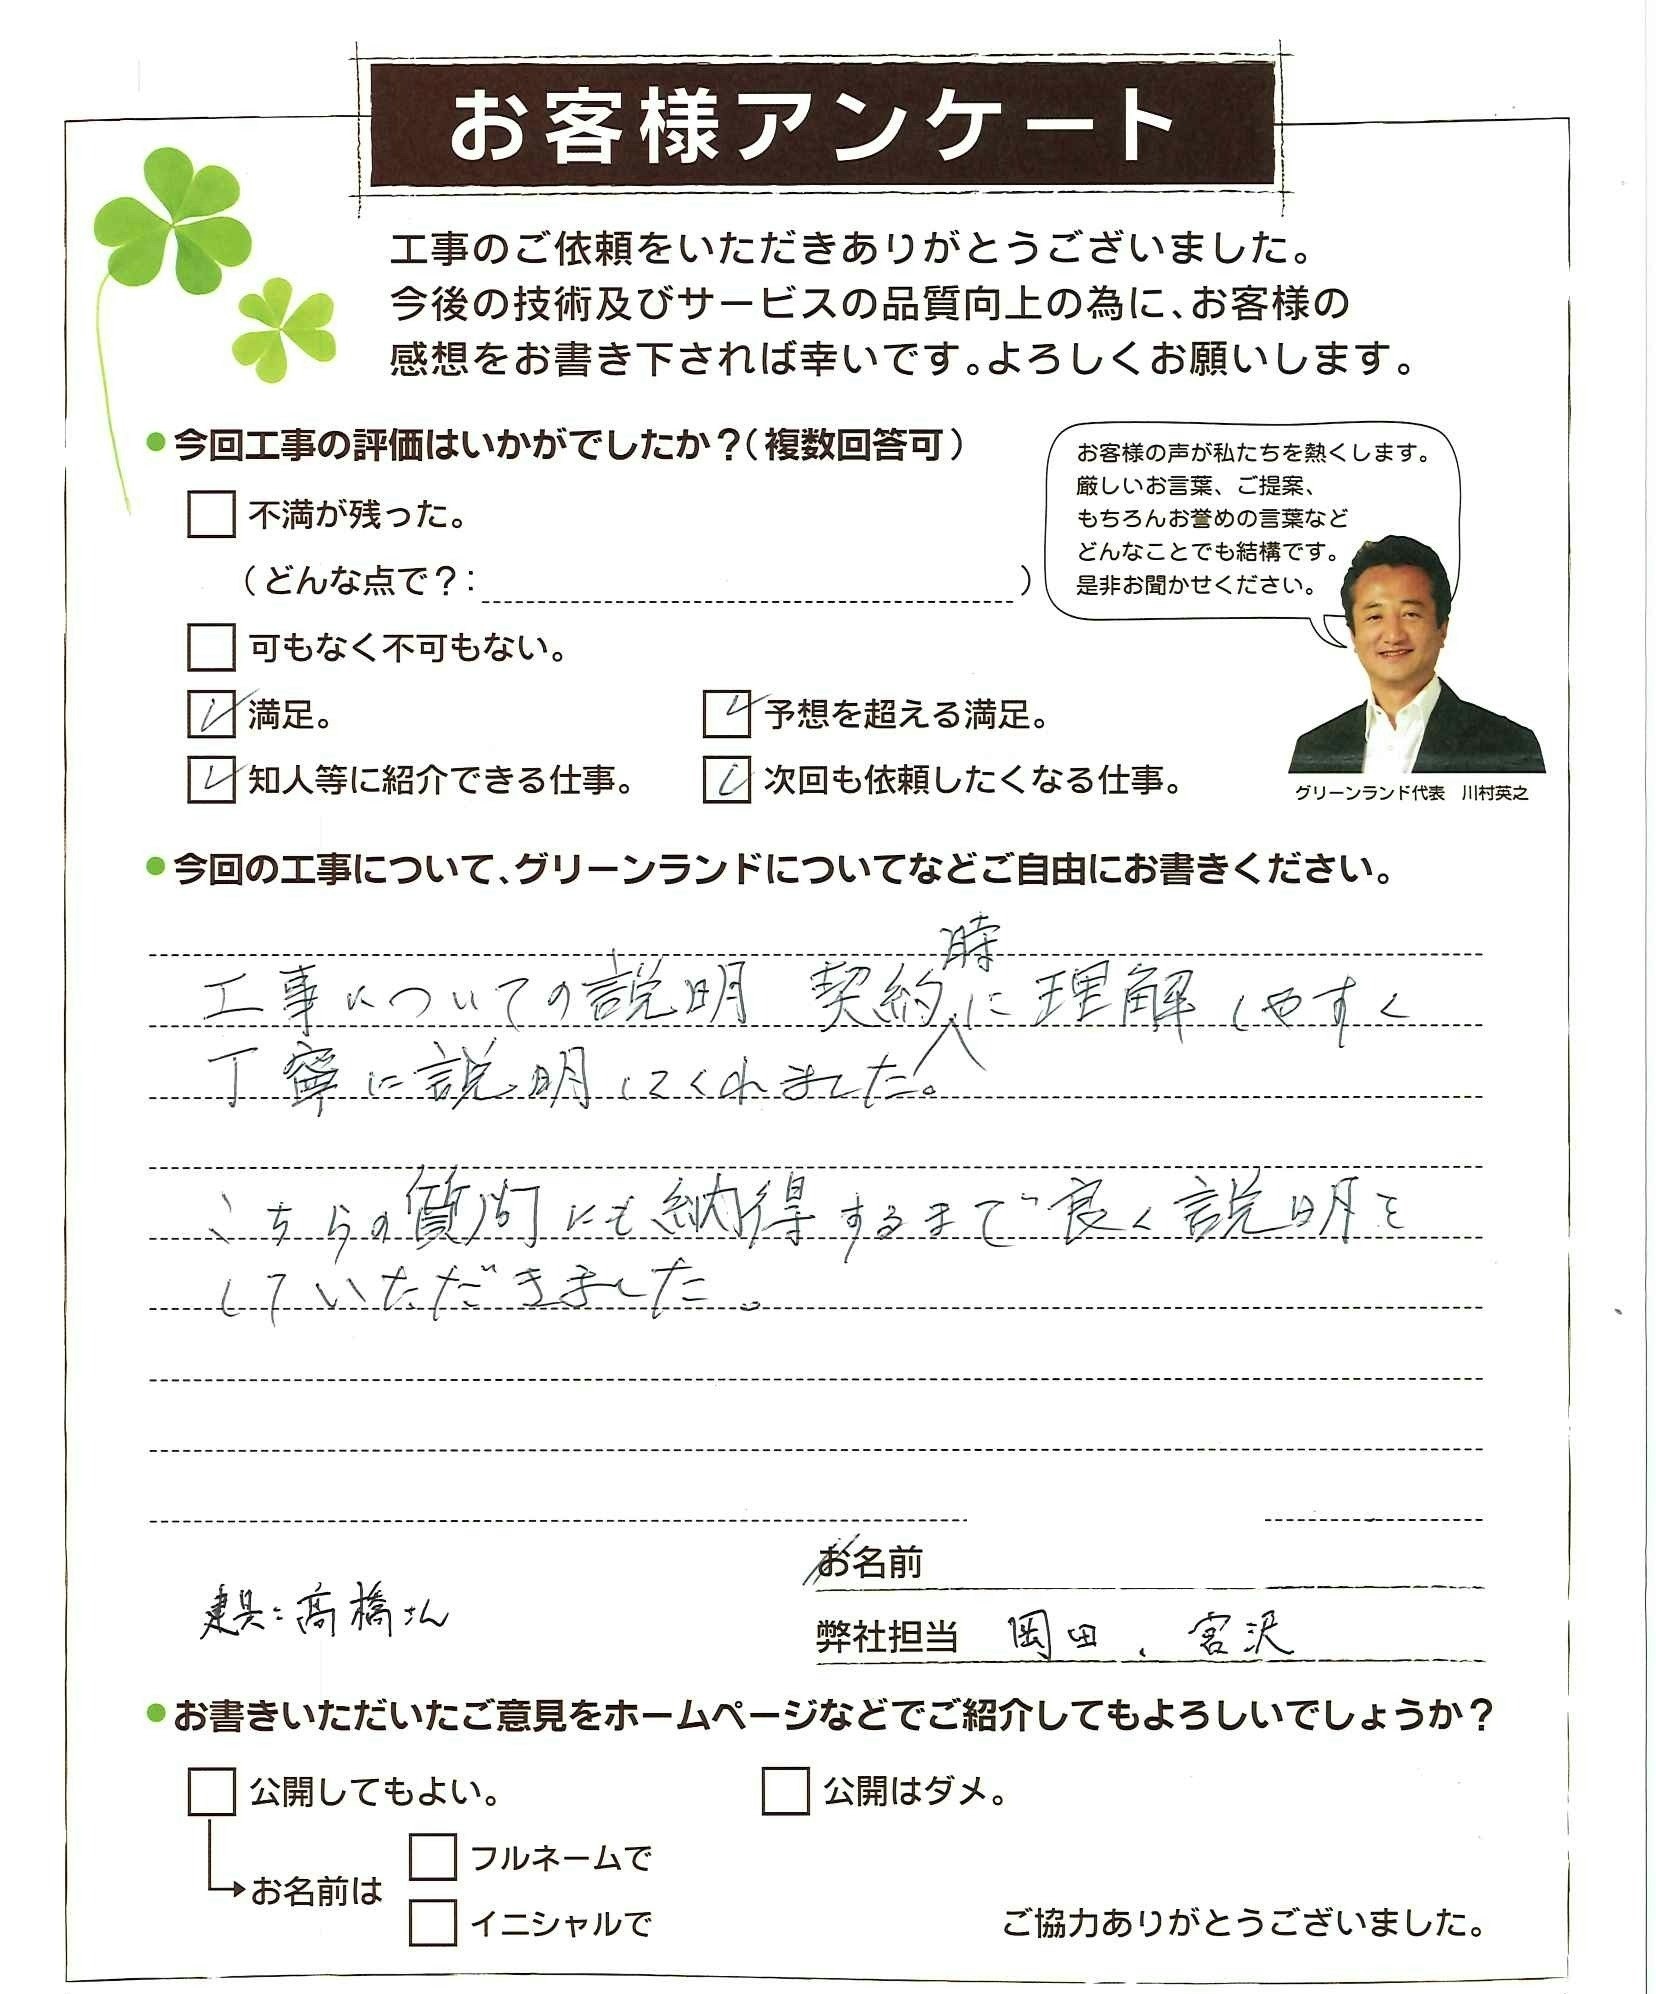 お客様アンケート
工事のご依頼をいただきありがとうございました。
今後の技術及びサービスの品質向上の為に、お客様の
感想をお書き下されば幸いです。よろしくお願いします。
●今回工事の評価はいかがでしたか？(複数回答可)
不満が残った。
(どんな点で？:　)
可もなく不可もない。
満足。
予想を超える満足。
知人等に紹介できる仕事。
次回も依頼したくなる仕事。
お客様の声が私たちを熱くします。
厳しいお言葉、ご提案、
もちろんお誉めの言葉など
どんなことでも結構です。
是非お聞かせください。
グリーンランド代表　川村英之
●今回の工事について、グリーンランドについてなどご自由にお書きください。
工事についての説明　契約時に理解しやすく
丁寧に説明してくれました。
こちらの質問にも納得するまで良く説明を
していただきました。
お名前
建具：高橋さん
弊社担当　岡田、宮沢
●お書きいただいたご意見をホームページなどでご紹介してもよろしいでしょうか？
公開してもよい。
公開はダメ。
お名前は
フルネームで
イニシャルで
ご協力ありがとうございました。